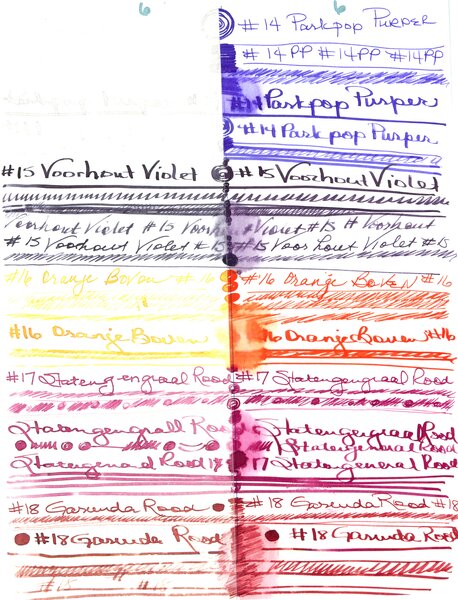 6 6
#14 Parkpop PURPER
#14PP #14PP #14PP
#14 Parkpop Purper
#14 Parkpop Purper
#15 Voorhout Violet #15 Voorhout Violet
Voorhout Violet #15 Voorh Violet #15 # Voorhout
#15 Voorhout Violet #15 #15 Voorhout Violet #15
#16 Oranje Boven #16 #16 Oranje BoveN #16
#16 Oranje Boven 16 Oranje Boven #16
#17 Statengengraal Rood #17 Statengengraal Rood
Statengengrall Rood Statengengraal Rood
Statengenoraal Rood
Statengenorad Rood 17 #17 Statengeneral Rood
#18 Garuda Rood #18 Garuda Rood #18
#18 Garuda Rood #18 Garuda Rood